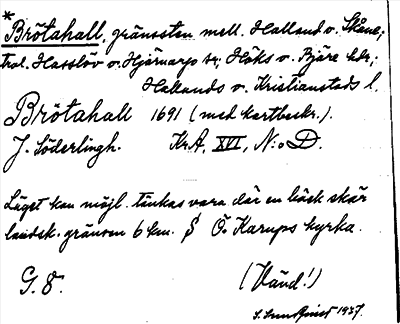 *
Brötahall, gränssten mell. Halland o. Skåne;
trol. Hasslöv o. Hjärnarp sr; Höks o. Bjäre hdr;
Hallands o. Kristianstads l.
Brötahall 1691 (med kartbeskr.).
J. Söderlingh. Kr.A, XVI, N:o D.
Läget kan möjl. tänkas vara där en bäck skär
landsk. gränsen 6 km. Ö. Karups kyrka.
G. 8. (Vänd!)
S. Sundqvist 1927.